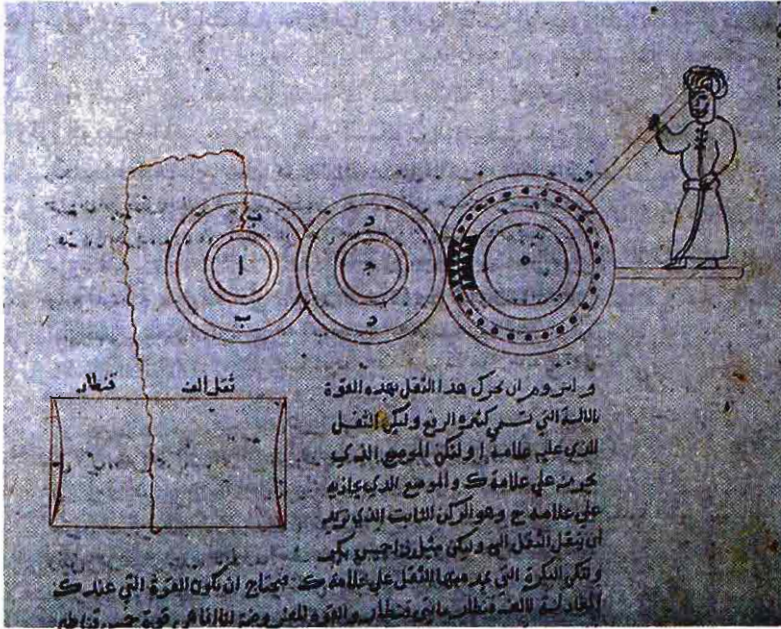 ب
د
ا
ج
ه
ب
د
ثقل الف قنطار
ولنروم ان نحرك هذا الثقل بهذه القوة
بالالة التي تسمى كثيرة الرفع وليكن الثقل
الذي عليه علامة ا وليكن الموضع الذي
يجر منه على علامة ك والموضع الذي يحاذيه
على علامة ح وهو الركن الثابت الذي نريد
ان ينتقل الثقل اليه وليكن
ولتكن البكرة التي عند فيها الثقل على علامة ك فنحتاج ان تكون القوة التي عند ك
المعادلة لالف قنطار مايتي قنطار والقوة المفروضة لنا انما هي قوة خمس قناطير